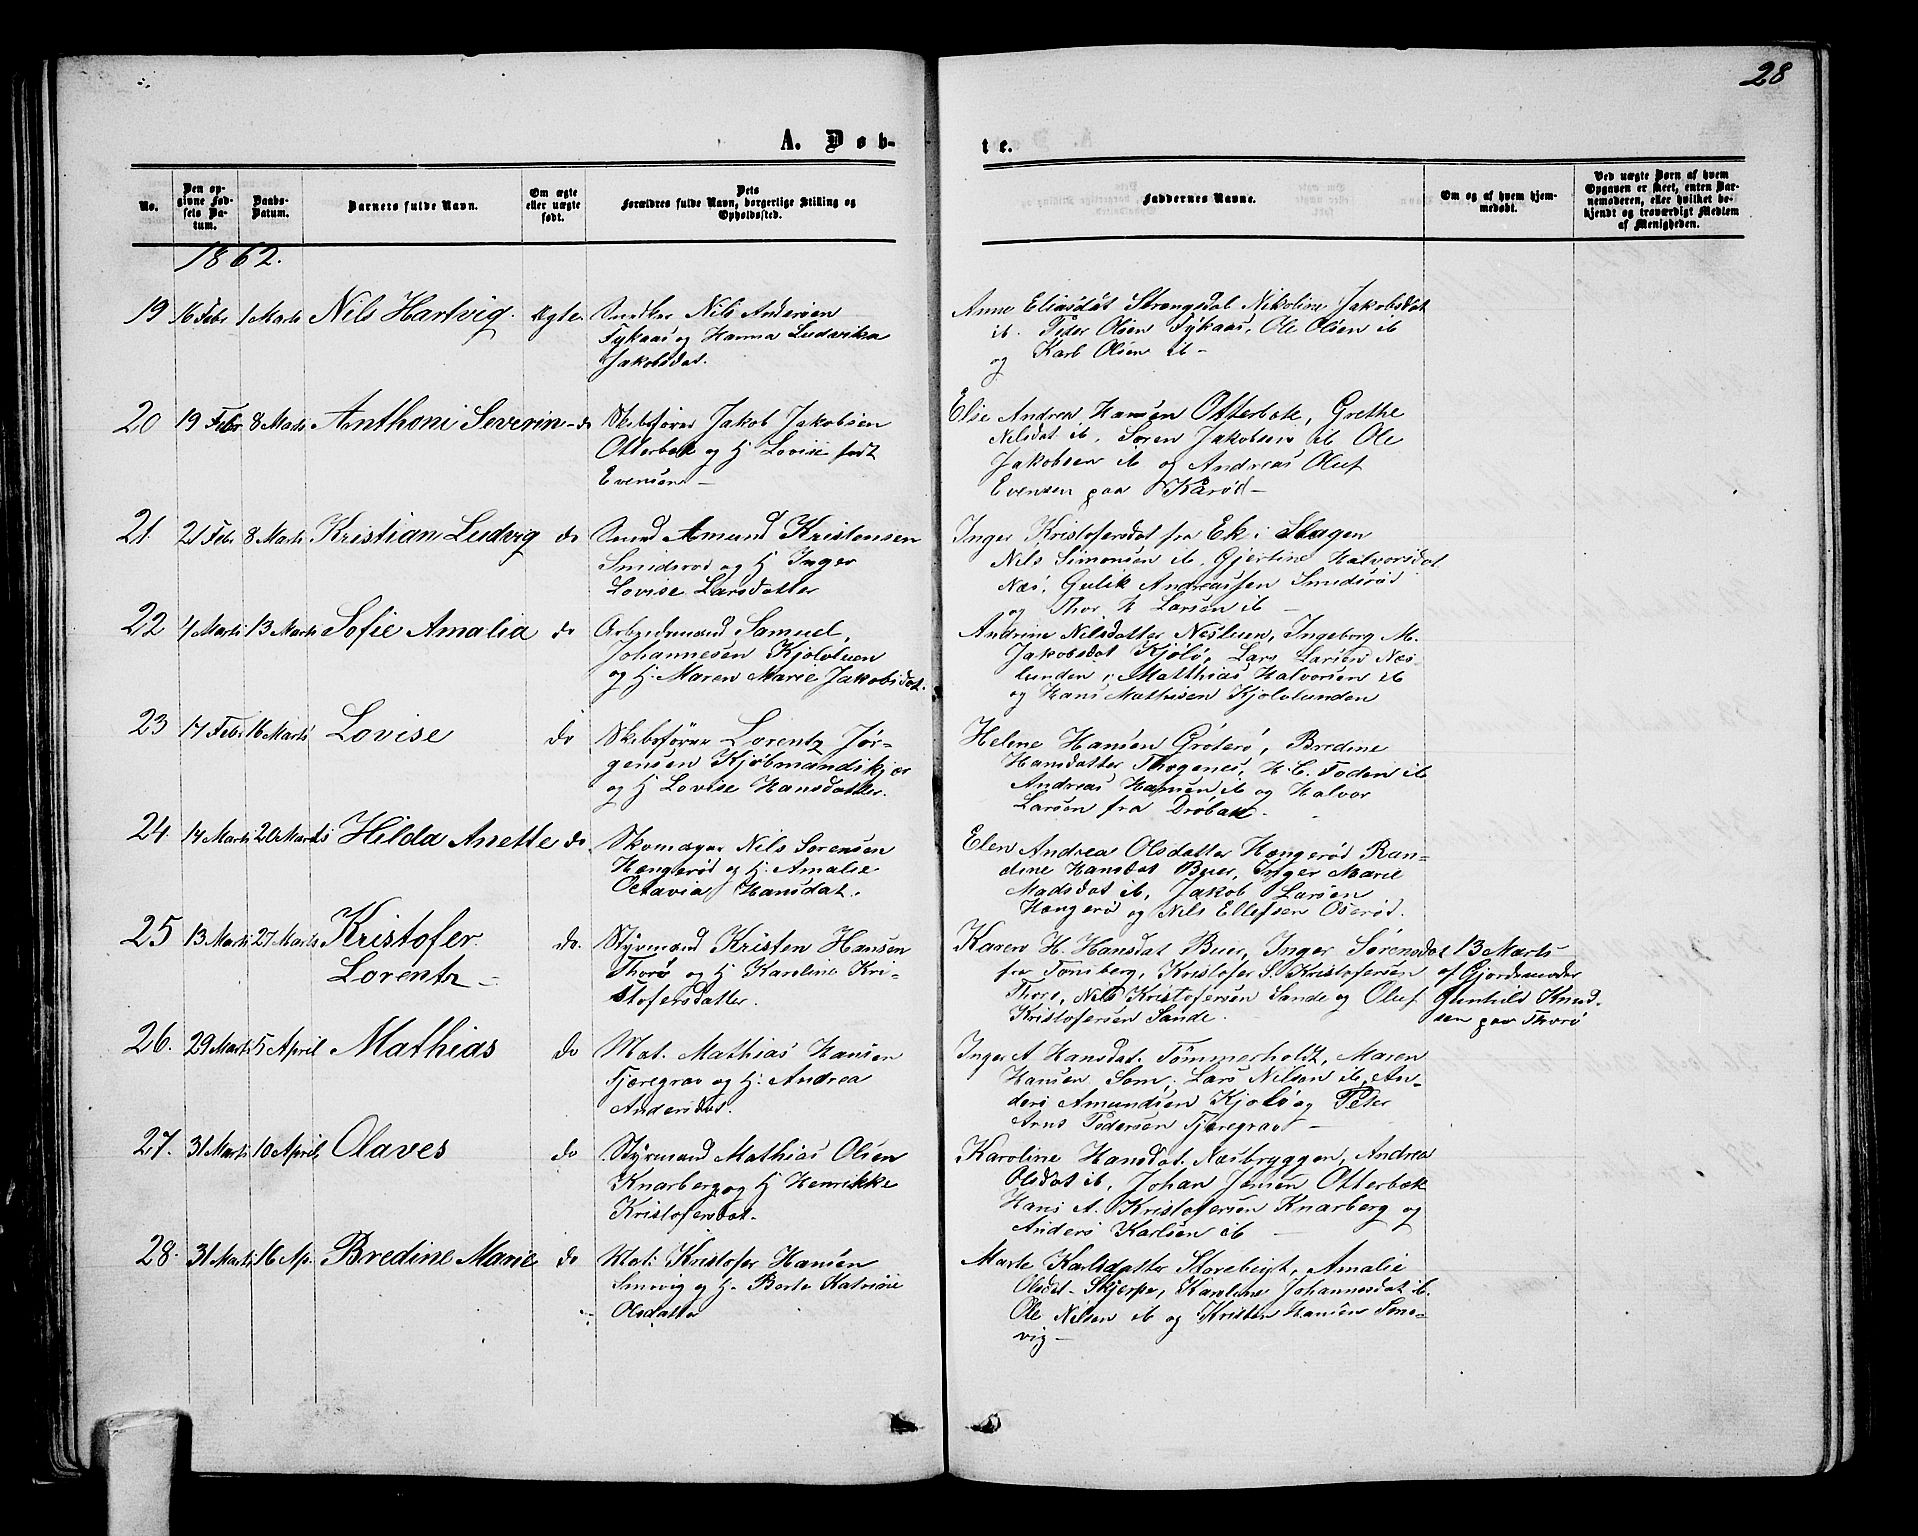 28
A. Døb-
te.
No.
Den op-
givne Fød-
sels Da-
tum.
Daabs-
Datum.
Barnets fulde Navn.
Om ægte
eller uægte
født.
Dets
Forældres fulde Navn, borgerlige Stilling og
Opholdssted.
Faddernes Navne.
Om og af hvem hjem-
medøbt.
Ved uægte Børn af hvem
Opgaven er skeet, enten Bar-
nemoderen, eller hvilket be-
kjendt og troværdigt Medlem
af Menigheden.
1862.
19 16 Febr 1 Marts Nils Hartvig. Ægte. Nils Andersen
Fykaas og Hanna Ludvika
Jakobsdat.
Anne Eliasdat Strengsdal Nikoline Jakobsdat
ib. Peder Olsen Fykaas, Ole Olsen ib
og Karl Olsen ib -
20 19 Febr 8 Marts Anthoni Severin - do Skibsfører Jakob Jakobsen
Otterbæk og H Lovise født
Evensen -
Elie Andrea Hansen Otterbæk, Grethe
Nilsdat ib, Søren Jakobsen ib Ole
Jakobsen ib og Andreas Oluf
Evensen paa Kårød -
21. 21 Febr 8 Marts Kristian Ludvig do Amund Kristensen
Smidsrød og H Inger
Lovise Larsdatter
Inger Kristofersdat fra Ek i Slagen
Nils Simonsen ib, Gjertine Halvorsdat
Næs, Gulik Andreassen Smidsrød
og Thor H Larsen ib -
22 4 Marts 13 Marts Sofie Amalia do Arbeidsmand Samuel
Johannesen Kjøloluen
og H. Maren Marie Jakobsdat.
Andrine Nilsdatter Neslunen, Ingeborg M.
Jakobsdat Kjølø, Lars Larsen Næs-
lunden, Matthias Halvorsen ib
og Hans Mathisen Kjølolunden
23 17 Febr 16 Marts Lovise do Skibsfører Lorentz Jør-
gensen Kjøbmandskjær
og H Lovise Hansdatter.
Helene Hansen Grøterø, Bredine
Hansdatter Thogenes, H C. Foden ib
Andreas Hansen ib og Halvor
Larsen fra Drøbak.
24. 14 Marts 20 Marts Hilda Anette do. Skomager Nils Sørensen
Hængerød og H. Amalie
Octavia Hansdat.
Elen Andrea Olsdatter Hængerød Ran-
dine Hansdat Buer, Inger Marie
Madsdat ib, Jakob Larsen
Hængerø og Nils Ellefsen Oserød.
25 13 Marts 27 Marts Kristofer
Lorentz -
do. Styrmand Kristen Hansen
Thorø og H Karoline Kri-
stofersdatter.
Karen H. Hansdat Buer, Inger Sørensdat
fra Tønsberg, Kristofer S. Kristofersen
Thorø, Nils Kristofersen Sande og Oluf
Kristofersen Sande.
13 Marts
af Gjordemoder
Gunhild Knud-
sen paa Thorø
26. 29 Marts 5 April Mathias do Mat. Mathias Hansen
Fjæregrav og H. Andrea
Andersdat.
Inger A Hansdat. Tømmerholt, Maren
Hansen Søm, Lars Nilsen ib, An-
ders Amundsen Kjølø og Peter
Arns Pedersen Fjæregrav -
27. 31 Marts 10 April, Olaves do Styrmand Mathias Olsen
Knarberg og H Henrikke
Kristofersdat.
Karoline Hansdat. Næsbryggen, Andrea
Olsdat ib, Johan Jensen Otterbæk
Hans A. Kristofersen Knarberg og
Anders Karlsen ib -
28. 31 Marts 16 Ap. Bredine Marie do Mat: Kristofer Hansen
Sønvig og H. Berte Katrine
Olsdatter
Marte Karlsdatter Storebigt, Amalie
Olsdat - Skjerpe, Karoline Johannesdat ib.
Ole Nilsen ib og Kristen Hansen Søn-
vig -